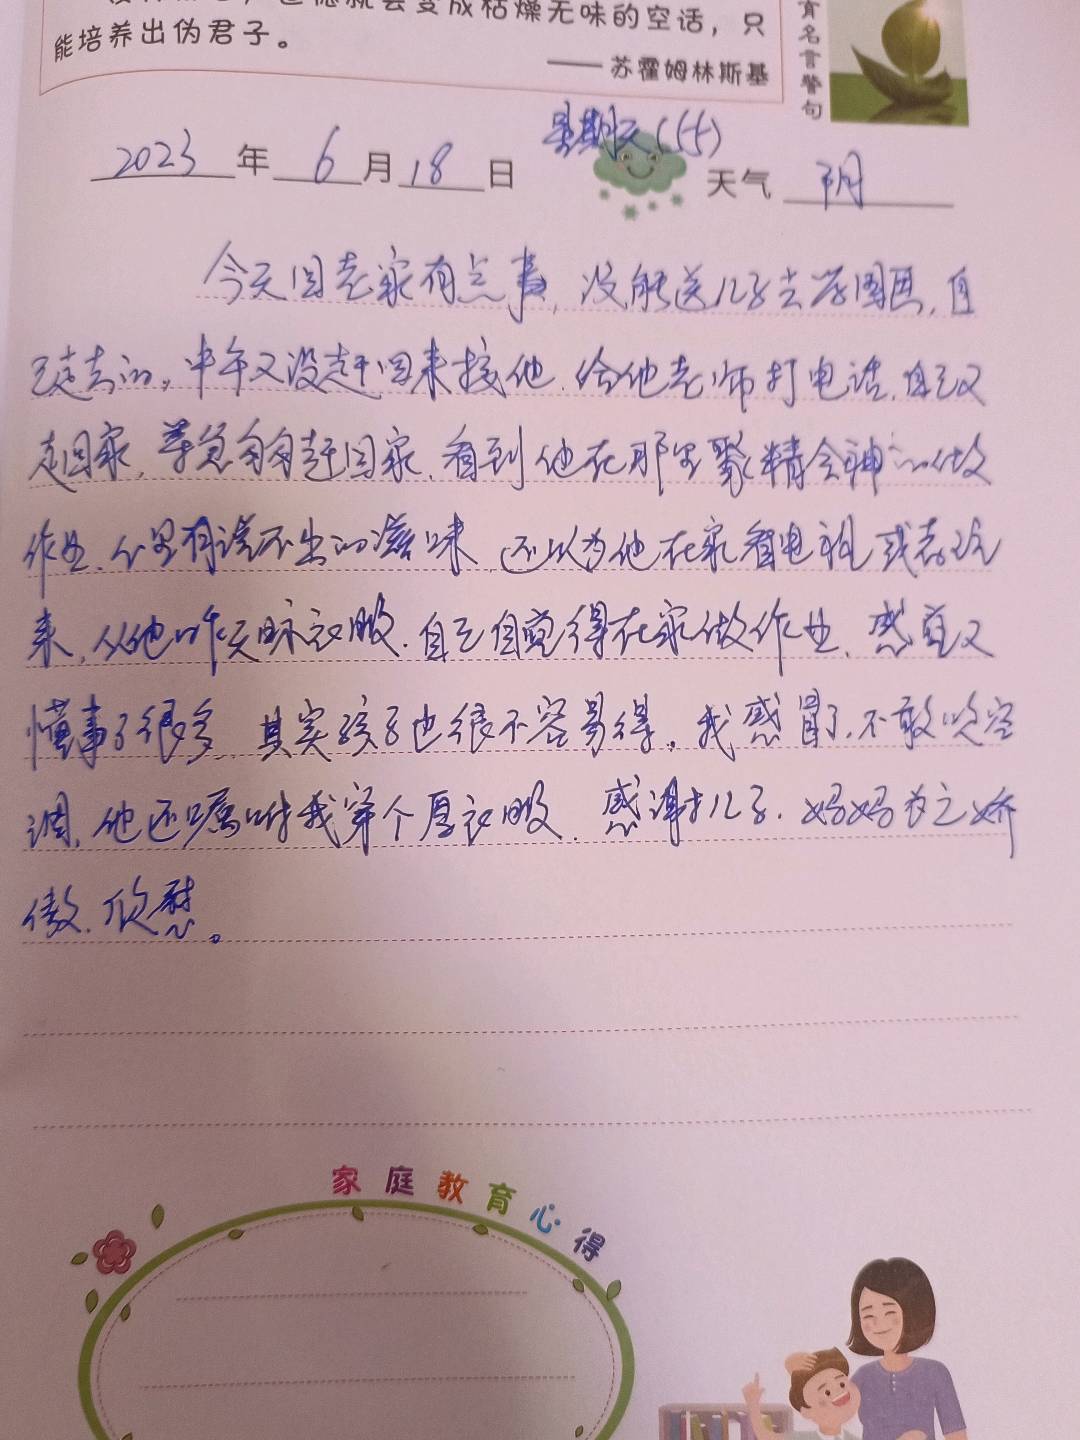 也德就会变成枯燥无味的空话，只
能培养出伪君子。
——苏霍姆林斯基
育名言警句
星期天(65)
2023年6月18日 天气 阴
今天回老家有点事，没能送儿子去学图画，自
己走去的。中午又没赶回来接他，给他老师打电话，自己又
走回家，等急匆匆赶回家，看到他在那里聚精会神的做
作业，心里有说不出的滋味，还以为他在家看电视或者玩
来，从他昨天晾衣服，自己自觉得在家做作业，感觉又
懂事了很多，其实孩子也很不容易得。我感冒了，不敢吹空
调，他还嘱咐我穿个厚衣服，感谢儿子，妈妈为之娇
傲，欣慰。
家庭教育心得